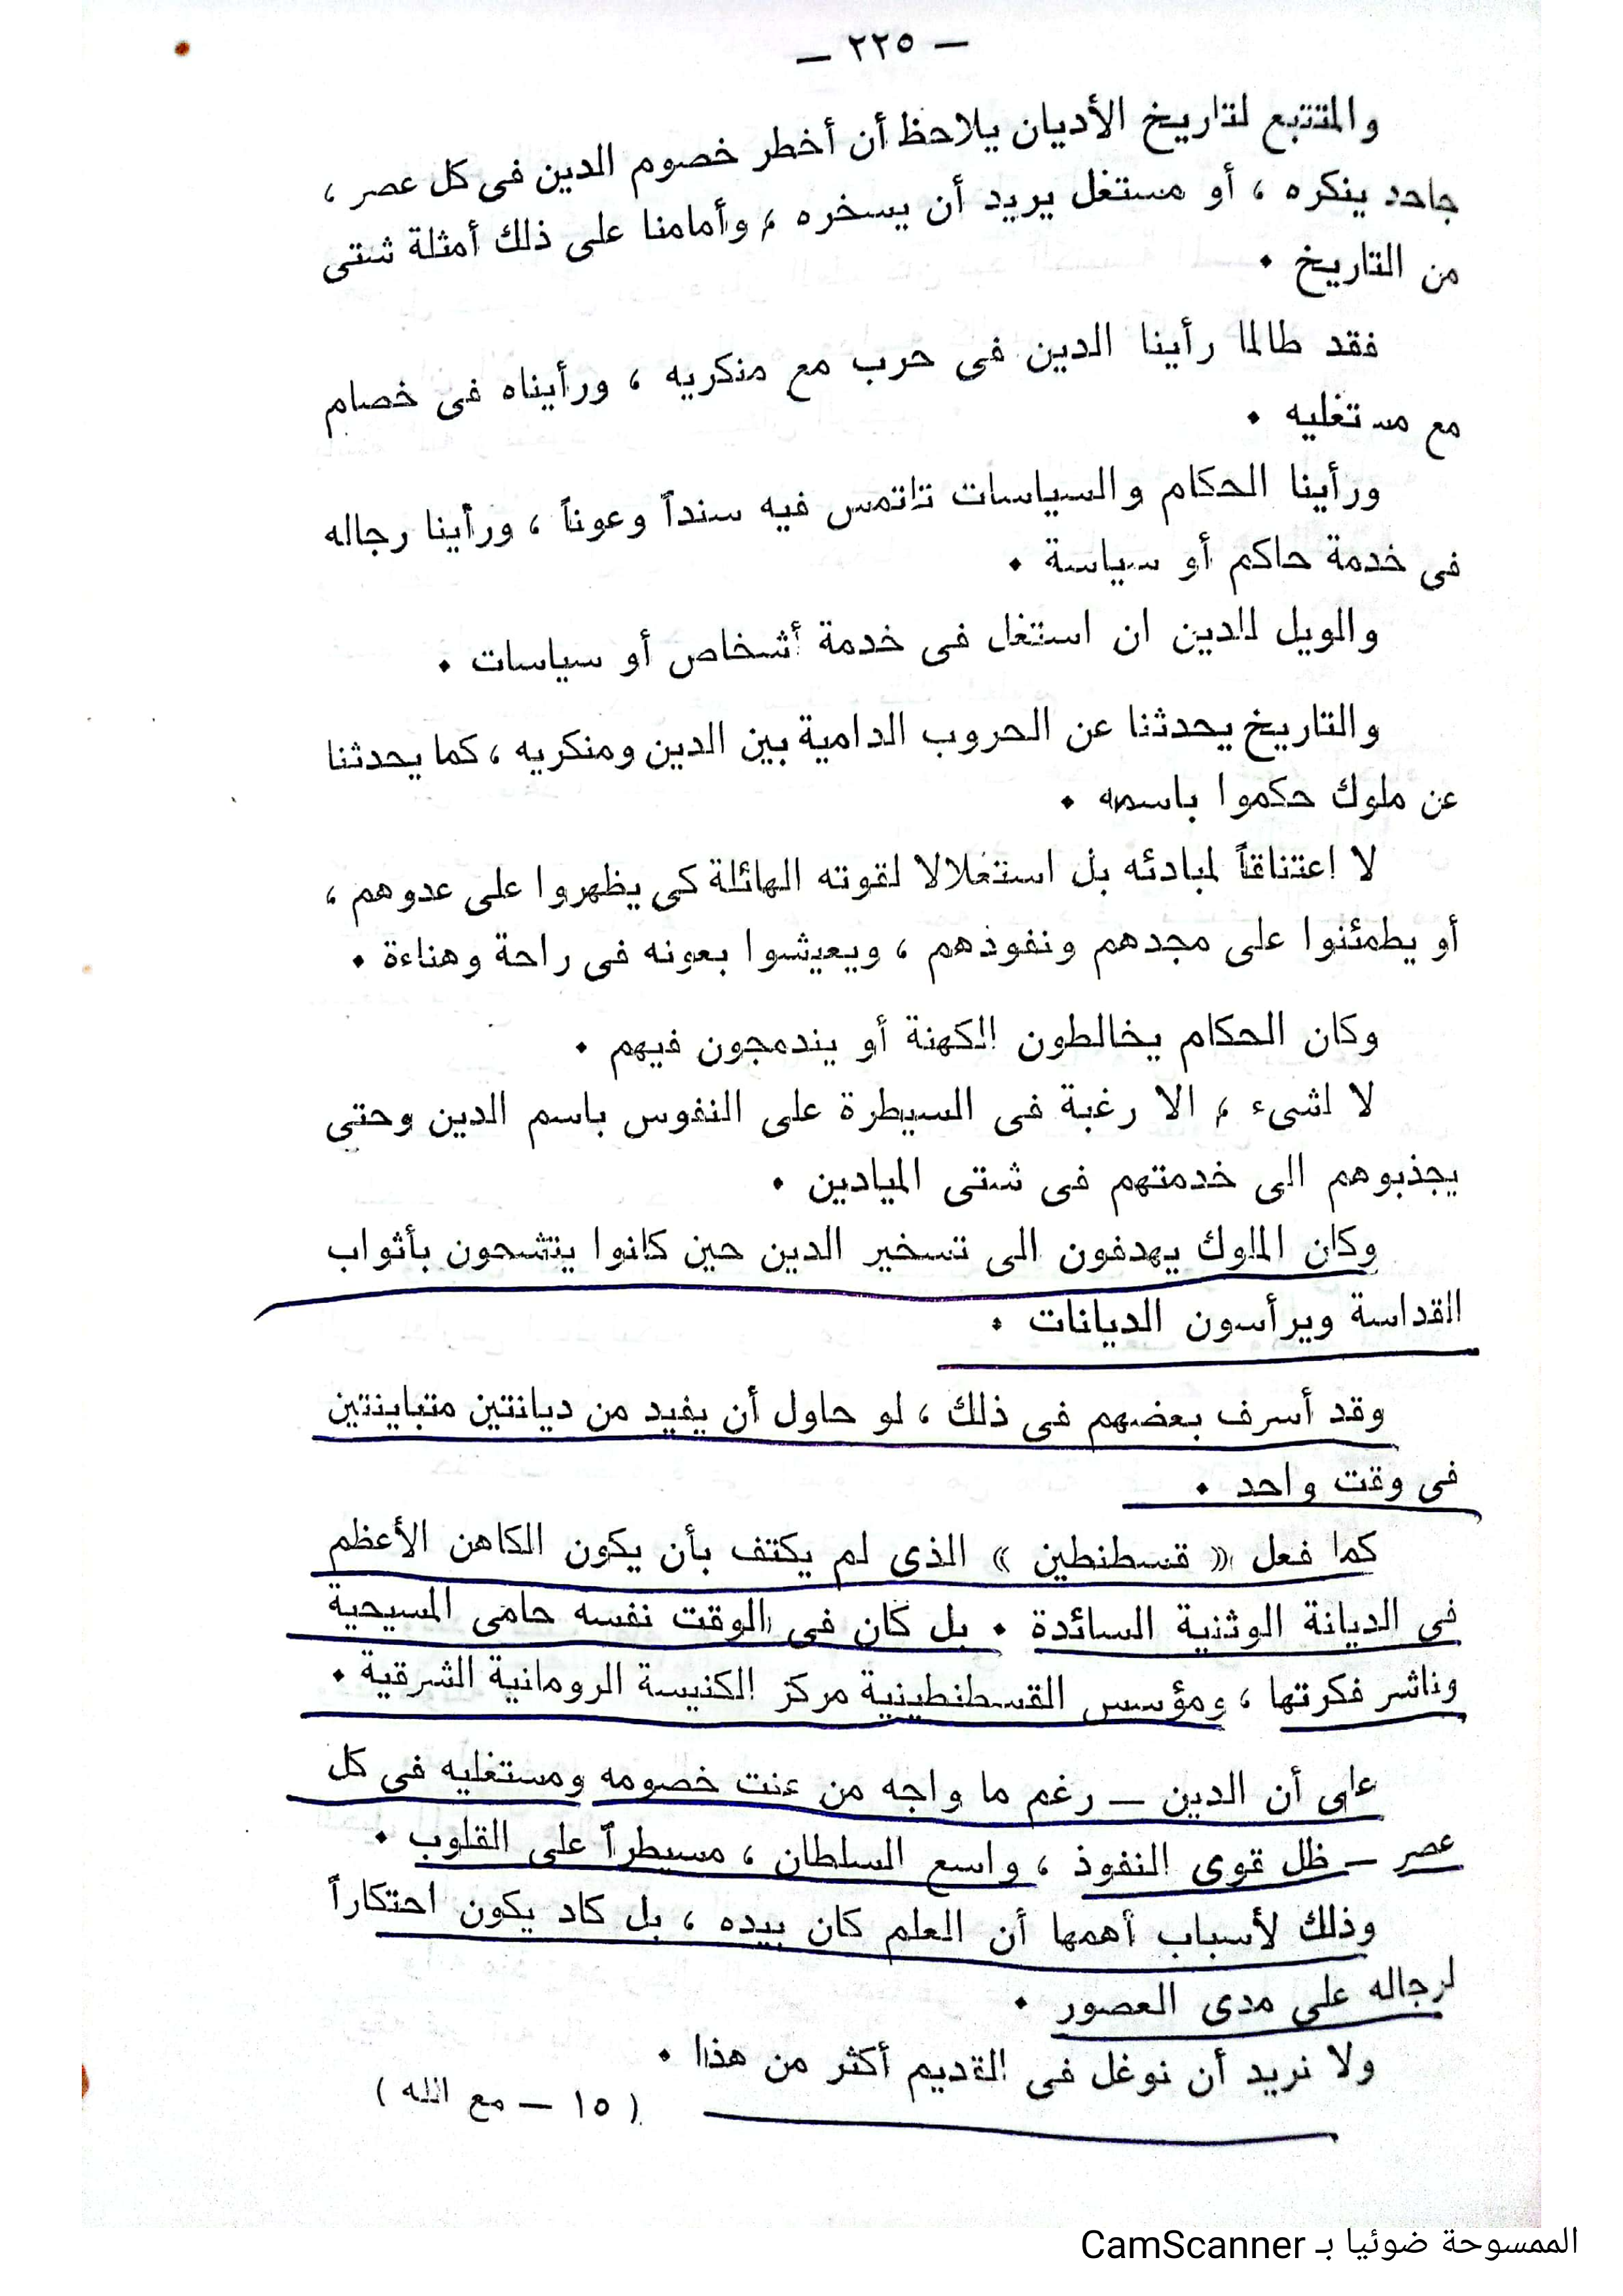 — ٢٢٥ —
والمتتبع لتاريخ الأديان يلاحظ أن أخطر خصوم الدين فى كل عصر ،
جاحد ينكره ، أو مستغل يريد أن يسخره ، وأمامنا على ذلك أمثلة شتى
من التاريخ .
فقد طالما رأينا الدين فى حرب مع منكريه ، ورأيناه فى خصام
مع مستغليه .
ورأينا الحكام والسياسات تلتمس فيه سنداً وعوناً ، ورأينا رجاله
فى خدمة حاكم أو سياسة .
والويل للدين ان استغل فى خدمة أشخاص أو سياسات .
والتاريخ يحدثنا عن الحروب الدامية بين الدين ومنكريه ، كما يحدثنا
عن ملوك حكموا باسمه .
لا اعتناقاً لمبادئه بل استغلالا لقوته الهائلة كى يظهروا على عدوهم ،
أو يطمئنوا على مجدهم ونفوذهم ، ويعيشوا بعونه فى راحة وهناءة .
وكان الحكام يخالطون الكهنة أو يندمجون فيهم .
لا لشىء ، الا رغبة فى السيطرة على النفوس باسم الدين وحتى
يجذبوهم الى خدمتهم فى شتى الميادين .
وكان الملوك يهدفون الى تسخير الدين حين كانوا يتشحون بأثواب
القداسة ويرأسون الديانات .
وقد أسرف بعضهم فى ذلك ، لو حاول أن يفيد من ديانتين متباينتين
فى وقت واحد .
كما فعل « قسطنطين » الذى لم يكتف بأن يكون الكاهن الأعظم
فى الديانة الوثنية السائدة . بل كان فى الوقت نفسه حامى المسيحية
وناشر فكرتها ، ومؤسس القسطنطينية مركز الكنيسة الرومانية الشرقية .
على أن الدين — رغم ما واجه من عنت خصومه ومستغليه فى كل
عصر — ظل قوى النفوذ ، واسع السلطان ، مسيطراً على القلوب .
وذلك لأسباب أهمها أن العلم كان بيده ، بل كاد يكون احتكاراً
لرجاله على مدى العصور .
ولا نريد أن نوغل فى القديم أكثر من هذا .
( ١٥ — مع الله )
الممسوحة ضوئيا بـ CamScanner